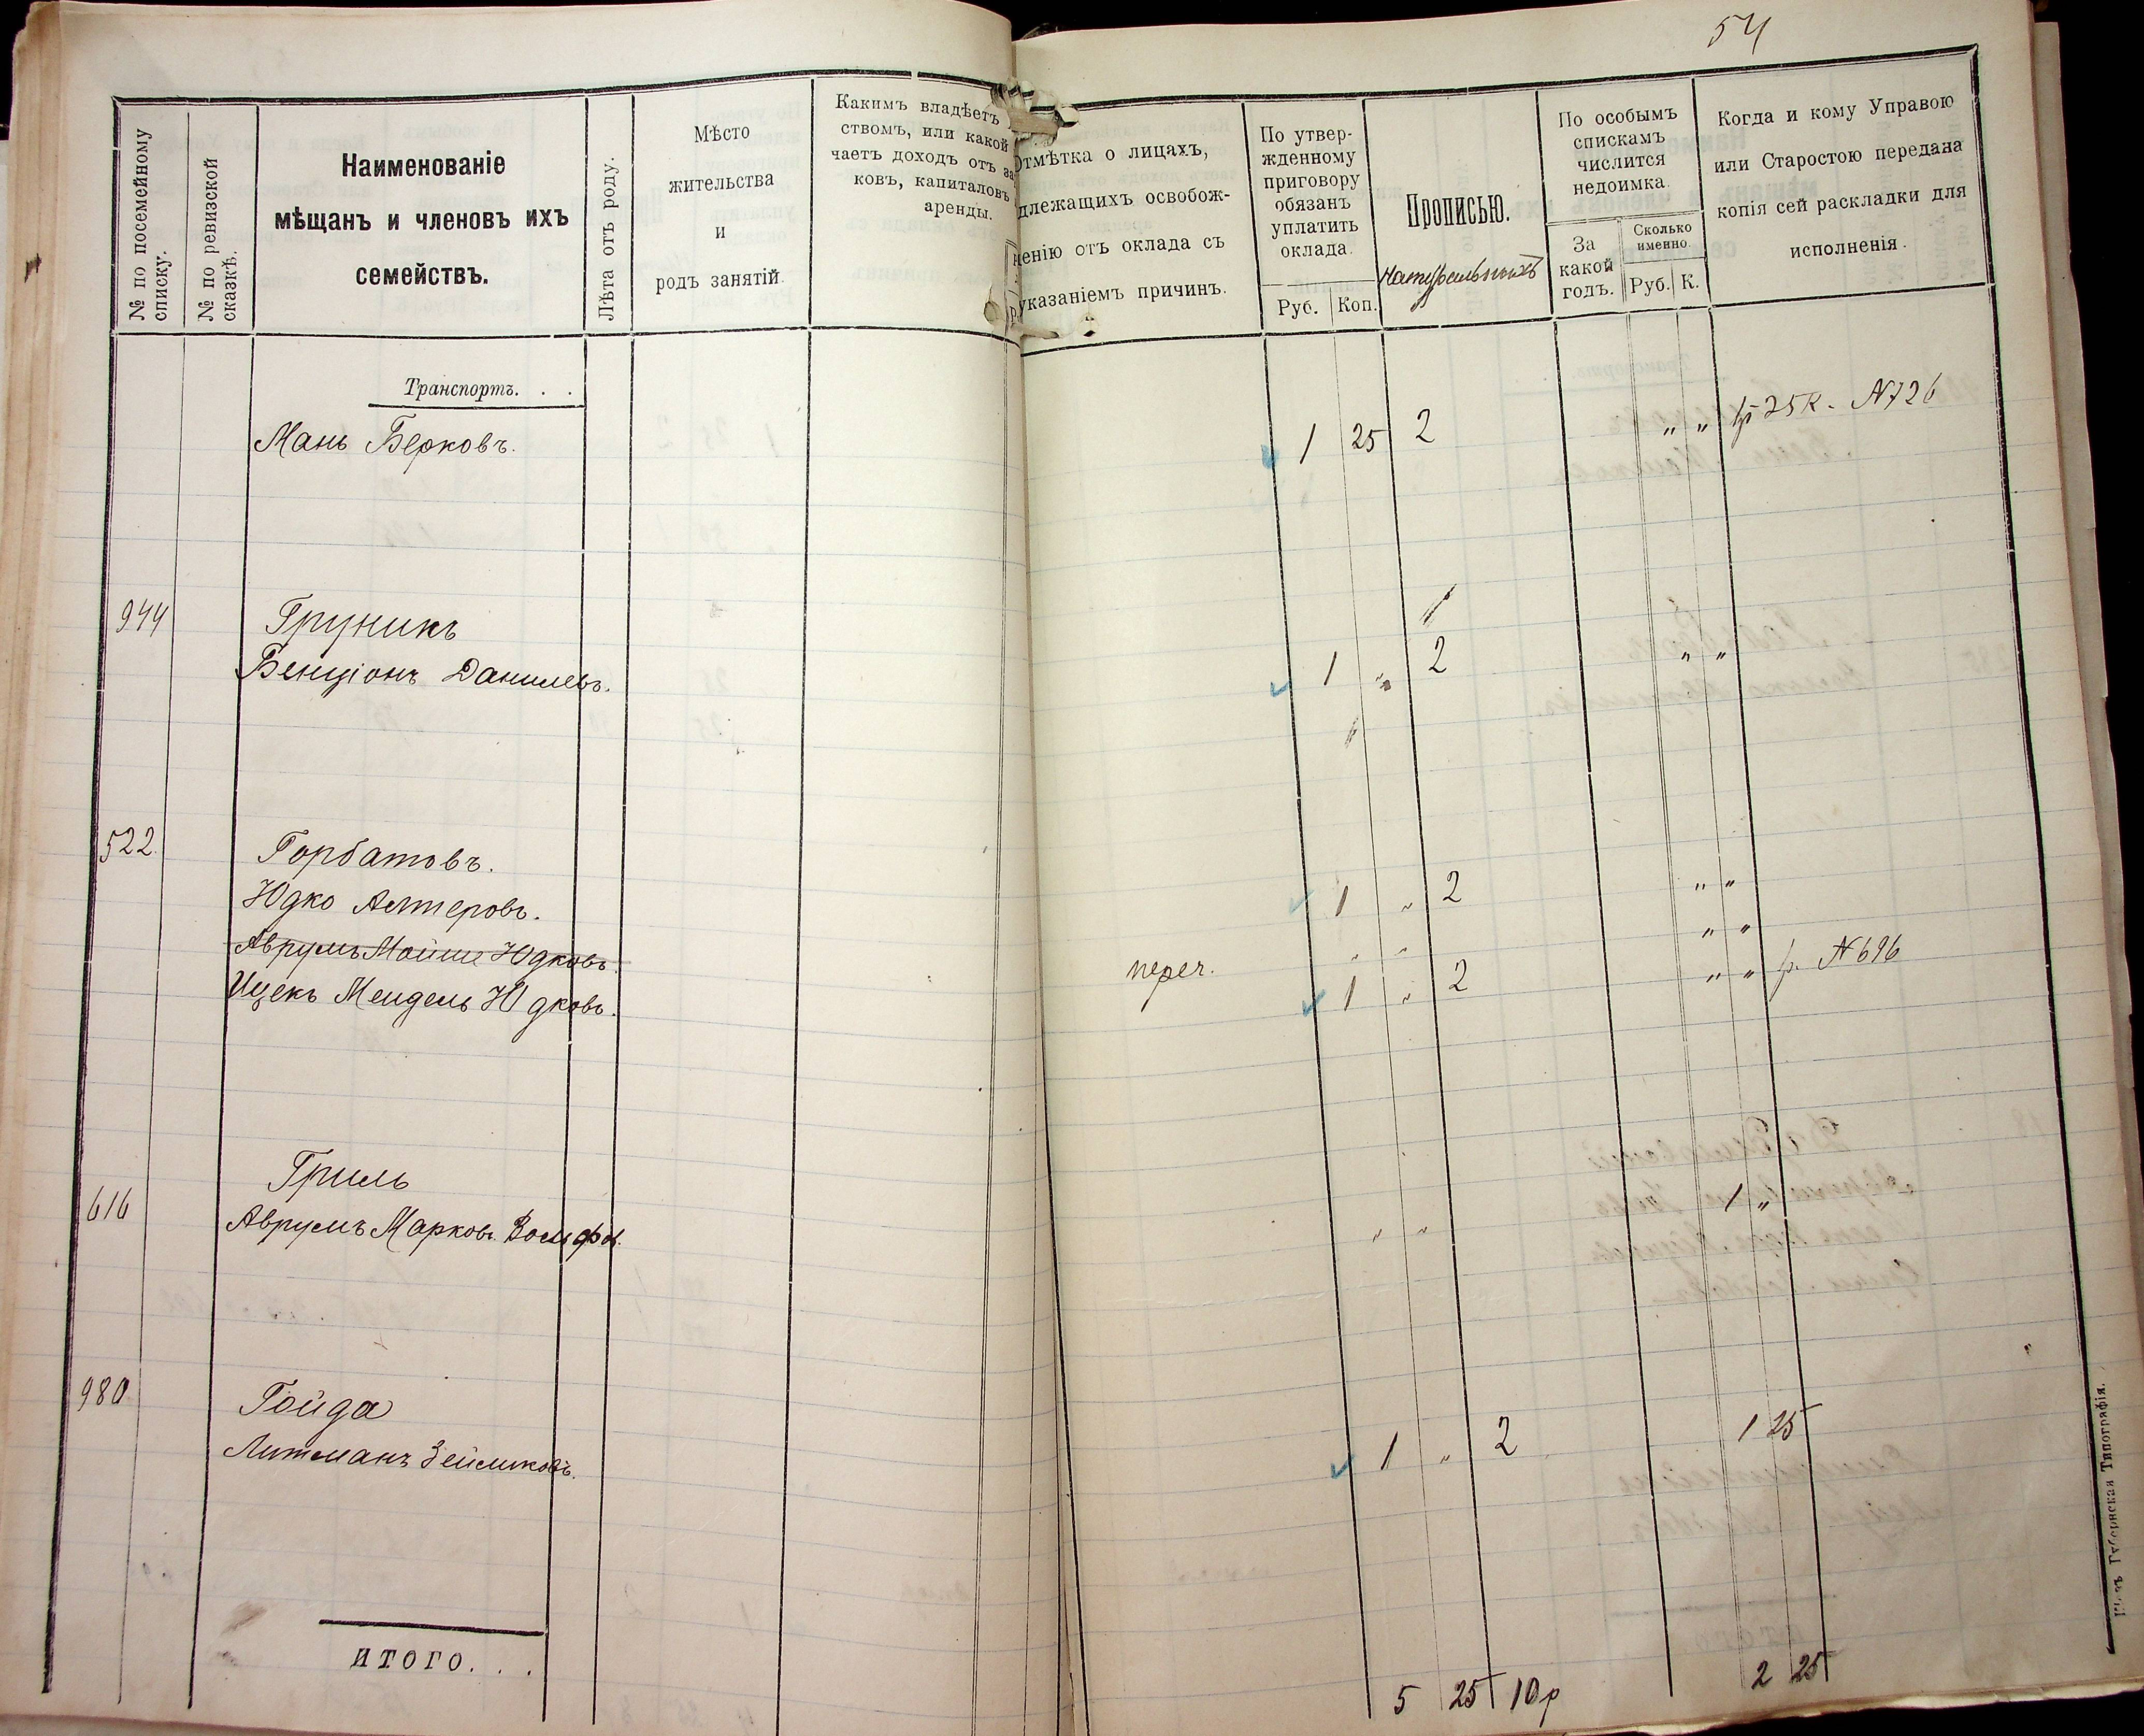 54
№ по посемейному
списку.
№ по ревизской
сказкѣ.
Наименованіе
мѣщанъ и членовъ ихъ
семействъ.
Лѣта отъ роду.
Мѣсто
жительства
и
родъ занятій.
Какимъ владѣетъ
ствомъ, или какой
чаетъ доходъ отъ за
ковъ, капиталовъ
аренды.
Отмѣтка о лицахъ,
длежащихъ освобож-
ненію отъ оклада съ
указаніемъ причинъ.
По утвер-
жденному
приговору
обязанъ
уплатить
оклада.
Руб. Коп.
Прописью.
Натуральныхъ
По особымъ
спискамъ
числится
недоимка.
За
какой
годъ.
Сколько
именно.
Руб. К.
Когда и кому Управою
или Старостою передана
копія сей раскладки для
исполненія.
Транспортъ. . .
Мань Берковъ. 1 25 2 " " 1р 25к. №726
944 Груникъ
Бенціонъ Данилевъ. 1 " 2 " "
522. Горбатовъ.
Юдко Алтеровъ. 1 " 2 " "
Аврумъ Мойше Юдковъ. переч. " " " "
Ицекъ Мендель Юдковъ. 1 " 2 " " р. №696
Гриль
616 Аврумъ Марковъ Вольфов. " " 1 "
980 Гойда
Литманъ Зейликовъ. 1 " 2 1 25
ИТОГО. . . 5 25 10р 2 25
Губернская Типографія.